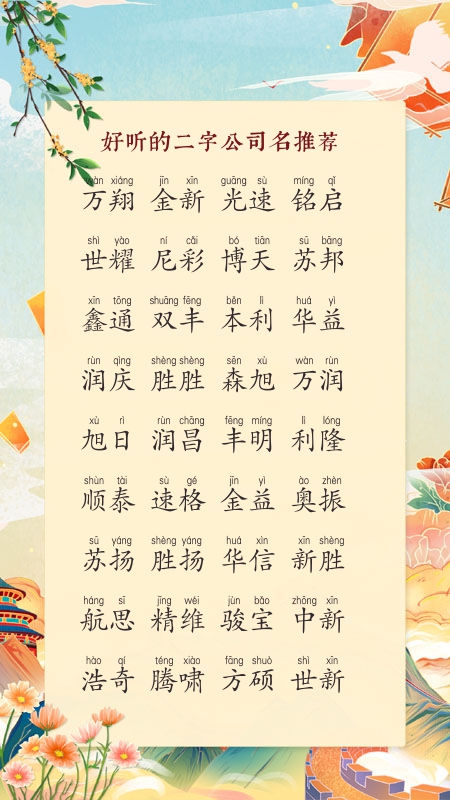 好听的二字公司名推荐
wàn xiáng jīn xīn guāng sù míng qǐ
万翔 金新 光速 铭启
shì yào ní cǎi bó tiān sū bāng
世耀 尼彩 博天 苏邦
xīn tōng shuāng fēng běn lì huá yì
鑫通 双丰 本利 华益
rùn qìng shèng shèng sēn xù wàn rùn
润庆 胜胜 森旭 万润
xù rì rùn chāng fēng míng lì lóng
旭日 润昌 丰明 利隆
shùn tài sù gé jīn yì ào zhèn
顺泰 速格 金益 奥振
sū yáng shèng yáng huá xìn xīn shèng
苏扬 胜扬 华信 新胜
háng sī jīng wéi jùn bǎo zhōng xīn
航思 精维 骏宝 中新
hào qí téng xiào fāng shuò shì xīn
浩奇 腾啸 方硕 世新